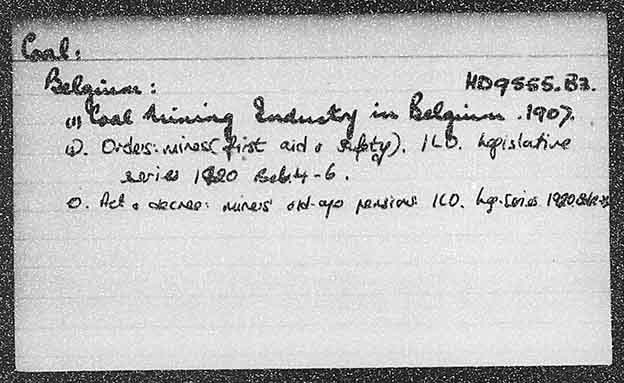 Coal:
Belgium: HD9555.B3.
(1) Coal Mining Industry in Belgium. 1907.
Orders: mines (first aid & safety). ILO. Legislative
series 1920 Bel. 4-6.
Act & decree: miners' old-age pensions ILO. Leg. Series 1920